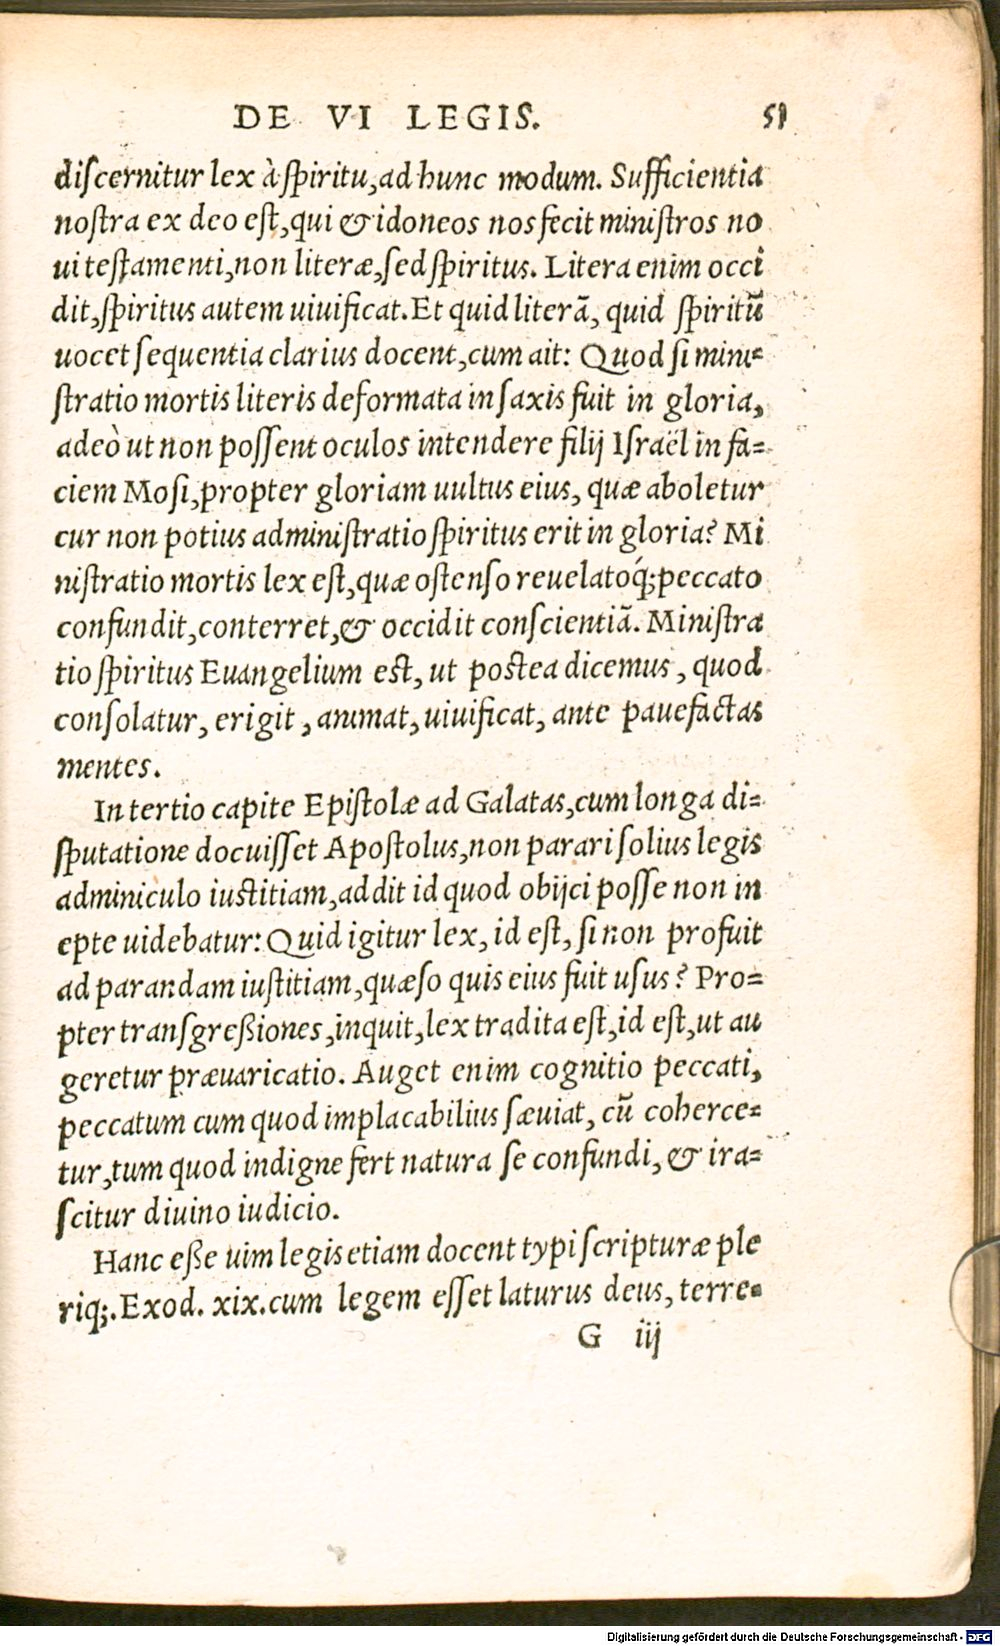 DE VI LEGIS. 51
diſcernitur lex à ſpiritu, ad hunc modum. Sufficientia
noſtra ex deo eſt, qui & idoneos nos fecit miniſtros no
ui teſtamenti, non literæ, ſed ſpiritus. Litera enim occi
dit, ſpiritus autem uiuificat. Et quid literā, quid ſpiritū
uocet ſequentia clarius docent, cum ait: Quod ſi mini-
ſtratio mortis literis deformata in ſaxis fuit in gloria,
adeò ut non poſſent oculos intendere filij Iſraël in fa-
ciem Moſi, propter gloriam uultus eius, quæ aboletur
cur non potius adminiſtratio ſpiritus erit in gloria? Mi
niſtratio mortis lex eſt, quæ oſtenſo reuelatoq́; peccato
confundit, conterret, & occidit conſcientiā. Miniſtra
tio ſpiritus Euangelium eſt, ut poſtea dicemus, quod
conſolatur, erigit, animat, uiuificat, ante pauefactas
mentes.
In tertio capite Epiſtolæ ad Galatas, cum longa di-
ſputatione docuiſſet Apoſtolus, non parari ſolius legis
adminiculo iuſtitiam, addit id quod obijci poſſe non in
epte uidebatur: Quid igitur lex, id eſt, ſi non profuit
ad parandam iuſtitiam, quæſo quis eius fuit uſus? Pro-
pter tranſgreßiones, inquit, lex tradita eſt, id eſt, ut au
geretur præuaricatio. Auget enim cognitio peccati,
peccatum cum quod implacabilius ſæuiat, cū coherce-
tur, tum quod indigne fert natura ſe confundi, & ira-
ſcitur diuino iudicio.
Hanc eße uim legis etiam docent typi ſcripturæ ple
riq;. Exod. xix. cum legem eſſet laturus deus, terre-
G iij
Digitalisierung gefördert durch die Deutsche Forschungsgemeinschaft - DFG